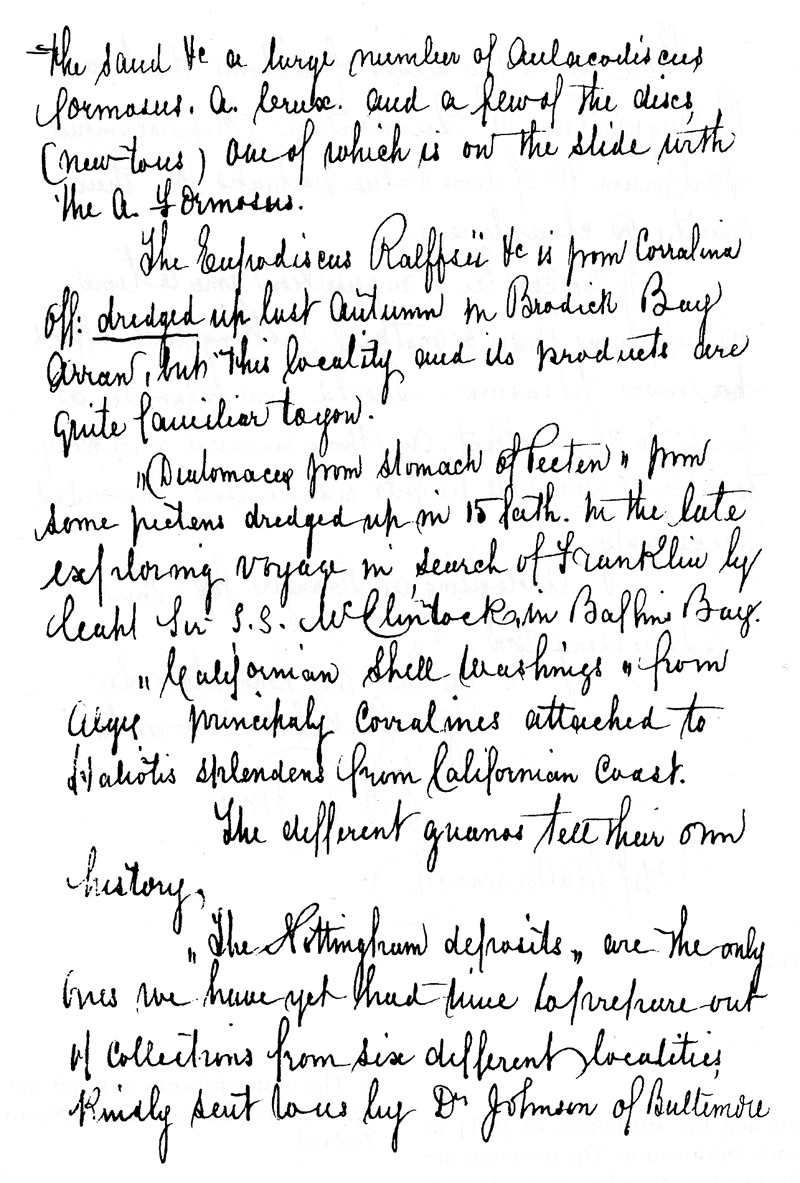 the sand &c a large number of Aulacodiscus
formosus. A. Crux. and a few of the discs
(new to us) one of which is on the slide with
the A. Formosus.
The Eupodiscus Ralffsii &c is from Corralina
Off: dredged up last Autumn in Brodick Bay
Arran, but this locality and its products are
quite familiar to you.
"Diatomaceæ from stomach of Pecten" from
some pectens dredged up in 15 fath. in the late
exploring voyage in search of Franklin by
Capt Sir S.S. McClintock, in Baffins Bay.
"Californian Shell Washings" from
Algæ principaly Corralines attached to
Haliotis splendens from Californian Coast.
The different guanos tell their own
history,
"The Nottingham deposits" are the only
ones we have yet had time to prepare out
of collections from six different localities
Kindly sent to us by Dr Johnson of Baltimore